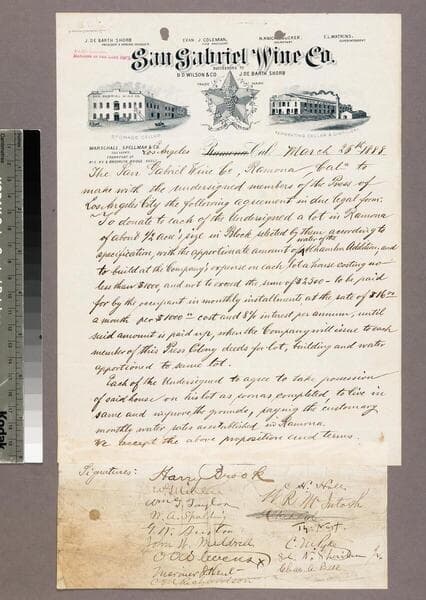 J. DE BARTH SHORB
EVAN J. COLEMAN,
E.L. WATKINS,
San Gabriel Wine Co.
SUCCESSORS TO
B. D. WILSON & CO. J. DE BARTH SHORB
TRADE MARK
SAN GABRIEL WINE CO.
STORAGE CELLAR
FERMENTING CELLAR &
MARSCHALL, SPELLMAN & CO.
Los Angeles Ramona Cal. March 28th 1888.
The San Gabriel Wine Co, Ramona, Cal.
make with the undersigned members of the Press of
Los Angeles City the following agreement in due legal form:
To donate to each of the Undersigned a lot in Ramona
of about 1/2 acre's size in Block selected by them according to
water of the
specification, with the apportionate amount of Alhambra Addition, and
to build at the Company's expense on each Lot a house costing no
less than $1000 and not to exceed the sum of $2500 - to be paid
for by the occupant in monthly installments at the rate of $16
a month per $1000 cost and 8% interest per annum, until
said amount is paid up, when the Company will issue to each
member of this Press Colony deeds for lot, building and water
apportioned to same lot.
Each of the Undersigned to agree to take possession
of said house on his lot as soon as completed, to live in
same and improve the grounds, paying the customary
monthly water rates as established in Ramona.
We accept the above proposition and terms.
Signatures: Harry Brook
C. H.
Wm. F. Taylor
W. R. McIntosh
W. A.
John W. Mildred
Richardson
Kodak